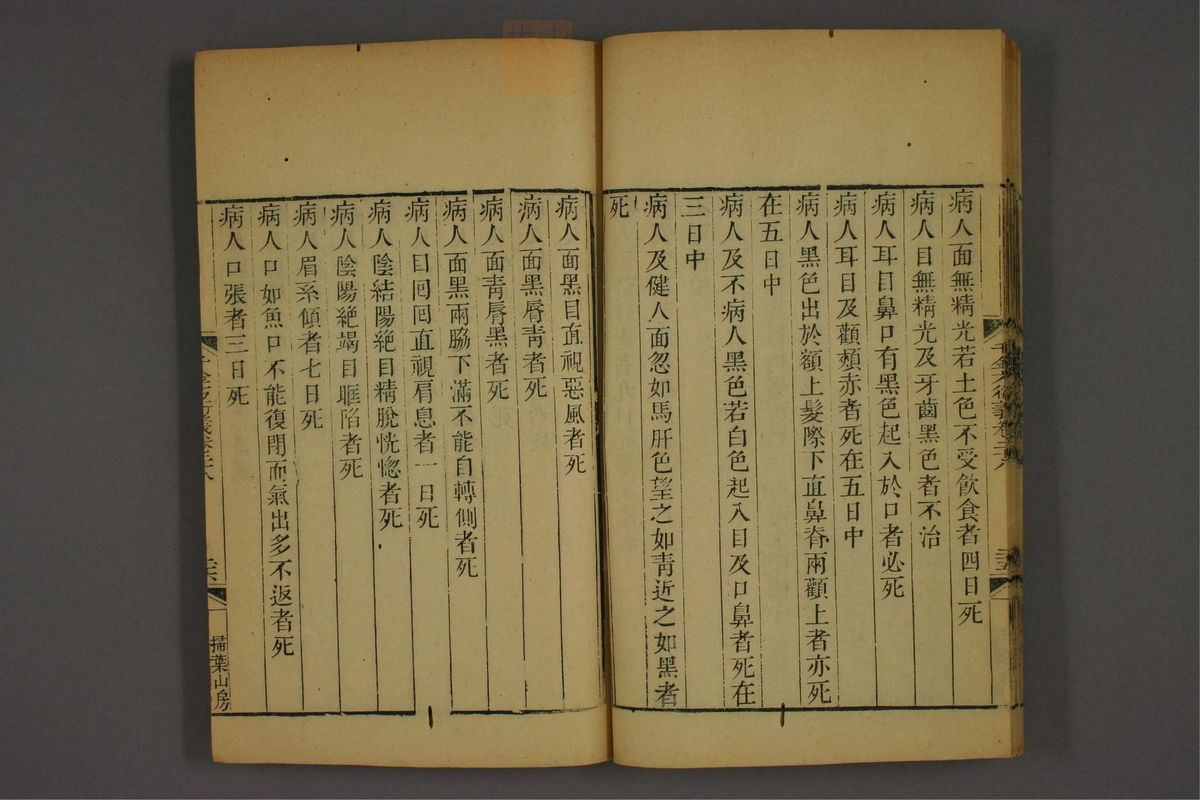 病人面無精光若土色不受飲食者四日死
病人目無精光及牙齒黑色者不治
病人耳目鼻口有黑色起入於口者必死
病人耳目及顴頰赤者死在五日中
病人黑色出於額上髮際下直鼻脊兩顴上者亦死
在五日中
病人及不病人黑色若白色起入目及口鼻者死在
三日中
病人及健人面忽如馬肝色望之如青近之如黑者
死
病人面黑目直視惡風者死
病人面黑脣青者死
病人面青脣黑者死
病人面黑兩脇下滿不能自轉側者死
病人目回回直視肩息者一日死
病人陰結陽絶目精脫恍惚者死
病人陰陽絶竭目眶陷者死
病人眉系傾者七日死
病人口如魚口不能復閉而氣出多不返者死
病人口張者三日死
掃葉山房